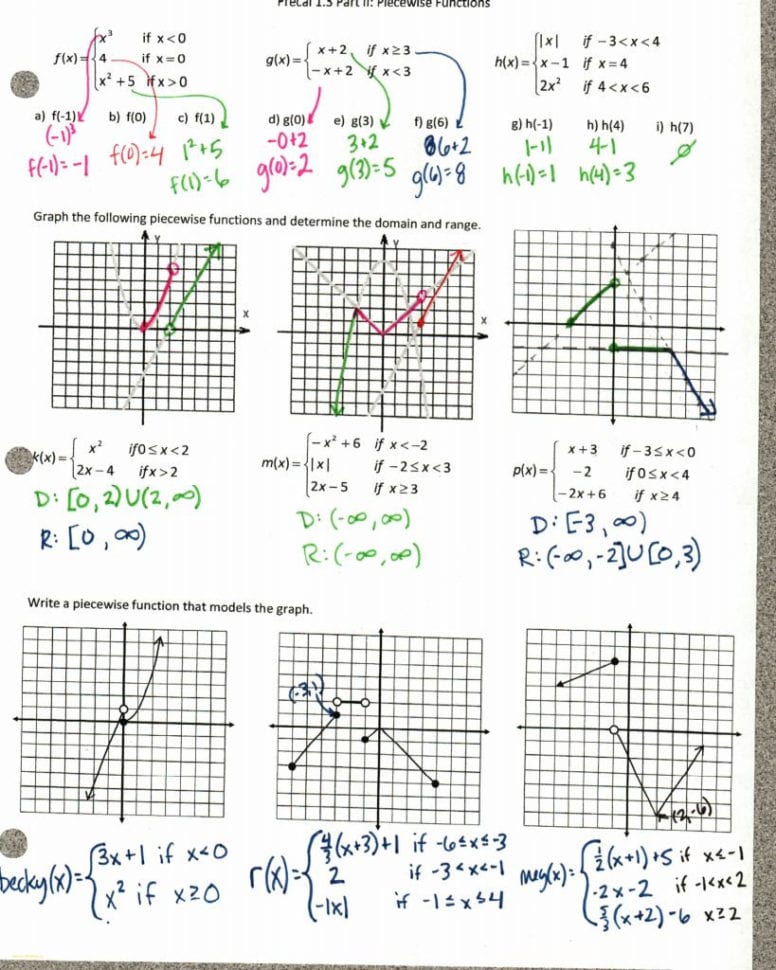 Precal 1.3 Part II: Piecewise Functions
f(x)={ x³ if x<0
4 if x=0
x²+5 if x>0
g(x)={ x+2, if x≥3
−x+2 if x<3
h(x)={ |x| if −3<x<4
x−1 if x=4
2x² if 4<x<6
a) f(-1) b) f(0) c) f(1) d) g(0) e) g(3) f) g(6) g) h(-1) h) h(4) i) h(7)
(-1)³ 1²+5 -0+2 3+2 6+2 |-1| 4-1 ∅
f(-1)=-1 f(0)=4 f(1)=6 g(0)=2 g(3)=5 g(6)=8 h(-1)=1 h(4)=3
Graph the following piecewise functions and determine the domain and range.
Y Y
X X
k(x)={ x² if 0≤x<2
2x−4 if x>2
D: [0,2)U(2,∞)
R: [0,∞)
m(x)={ −x²+6 if x<−2
|x| if −2≤x<3
2x−5 if x≥3
D: (-∞,∞)
R: (-∞,∞)
p(x)={ x+3 if −3≤x<0
−2 if 0≤x<4
−2x+6 if x≥4
D: [-3,∞)
R: (-∞,-2]U[0,3)
Write a piecewise function that models the graph.
(-3,1)
(2,-6)
becky(x)={ 3x+1 if x<0
x² if x≥0
r(x)={ 4/3(x+3)+1 if -6≤x≤-3
2 if -3<x<-1
-|x| if -1≤x≤4
meg(x)={ 1/2(x+1)+5 if x≤-1
-2x-2 if -1<x<2
5/3(x+2)-6 x≥2